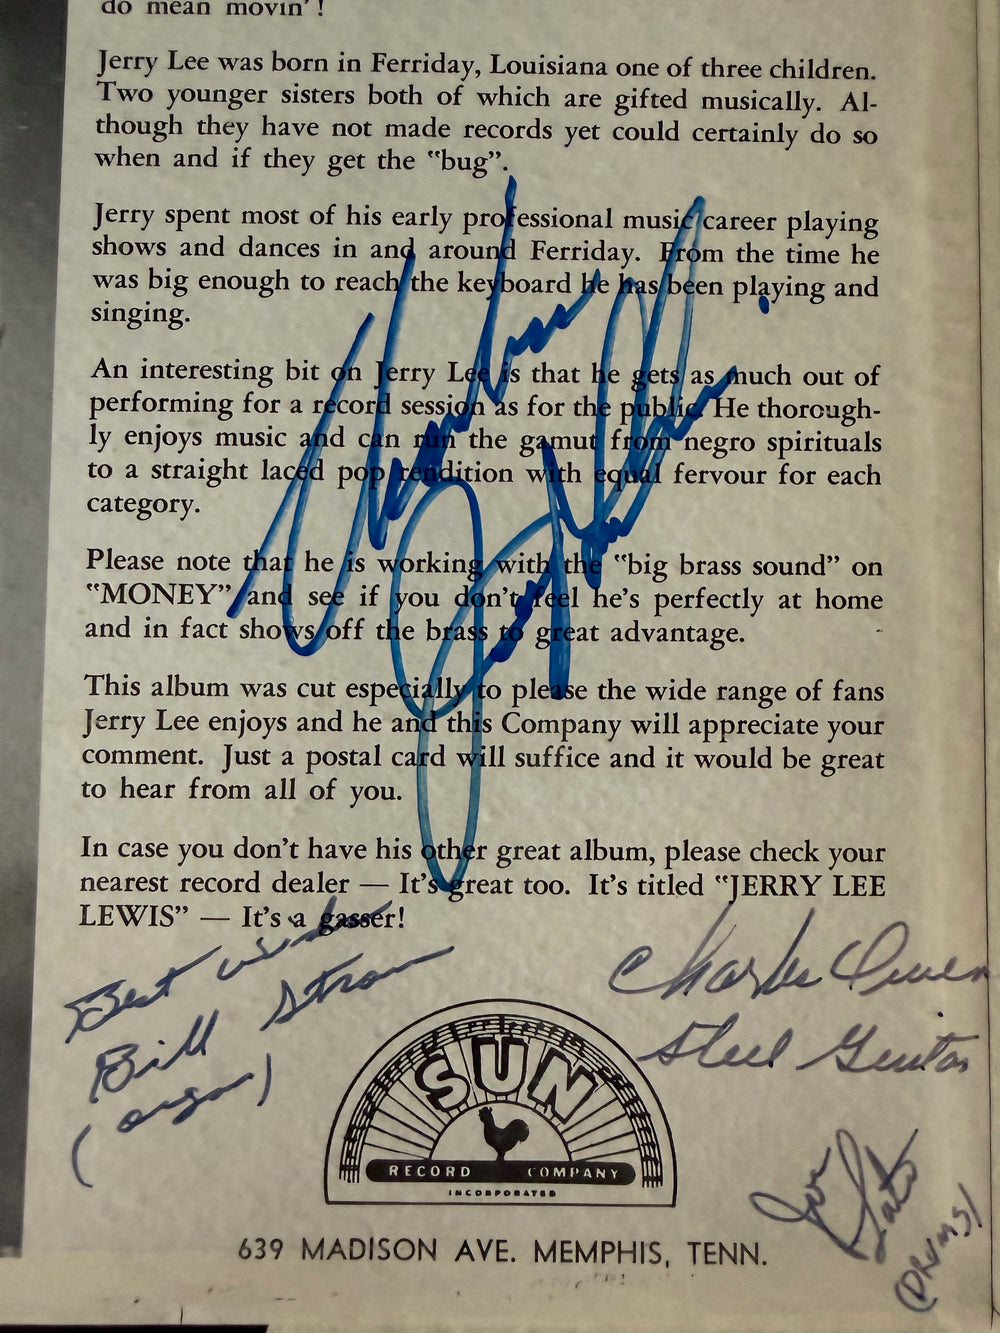 do mean movin'!
Jerry Lee was born in Ferriday, Louisiana one of three children.
Two younger sisters both of which are gifted musically. Al-
though they have not made records yet could certainly do so
when and if they get the "bug".
Jerry spent most of his early professional music career playing
shows and dances in and around Ferriday. From the time he
was big enough to reach the keyboard he has been playing and
singing.
An interesting bit on Jerry Lee is that he gets as much out of
performing for a record session as for the public. He thorough-
ly enjoys music and can run the gamut from negro spirituals
to a straight laced pop rendition with equal fervour for each
category.
Please note that he is working with the "big brass sound" on
"MONEY" and see if you don't feel he's perfectly at home
and in fact shows off the brass to great advantage.
This album was cut especially to please the wide range of fans
Jerry Lee enjoys and he and this Company will appreciate your
comment. Just a postal card will suffice and it would be great
to hear from all of you.
In case you don't have his other great album, please check your
nearest record dealer — It's great too. It's titled "JERRY LEE
LEWIS" — It's a gasser!
Best wishes
Bill Strom
(organ)
Charlie Owen
Steel Guitar
Joe
(DRUMS)
SUN
RECORD COMPANY
INCORPORATED
639 MADISON AVE. MEMPHIS, TENN.